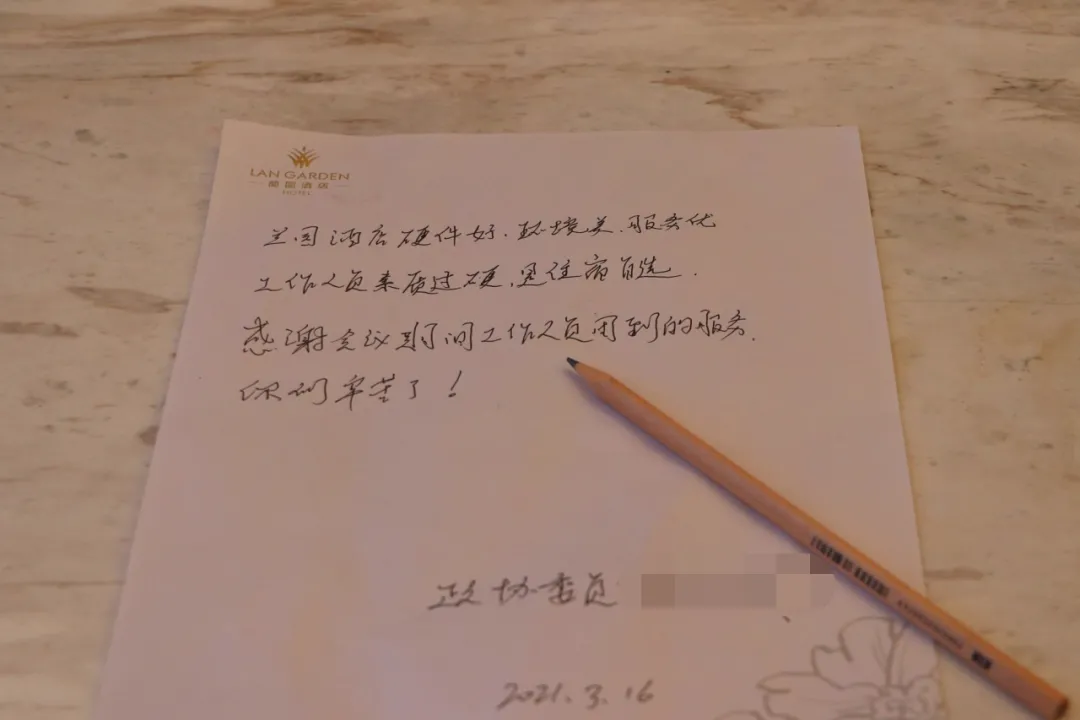 LAN GARDEN
蘭園酒店
HOTEL
兰园酒店硬件好.环境美.服务优
工作人员素质过硬,是住宿首选.
感谢会议期间工作人员周到的服务.
你们辛苦了!
政协委员
2021.3.16